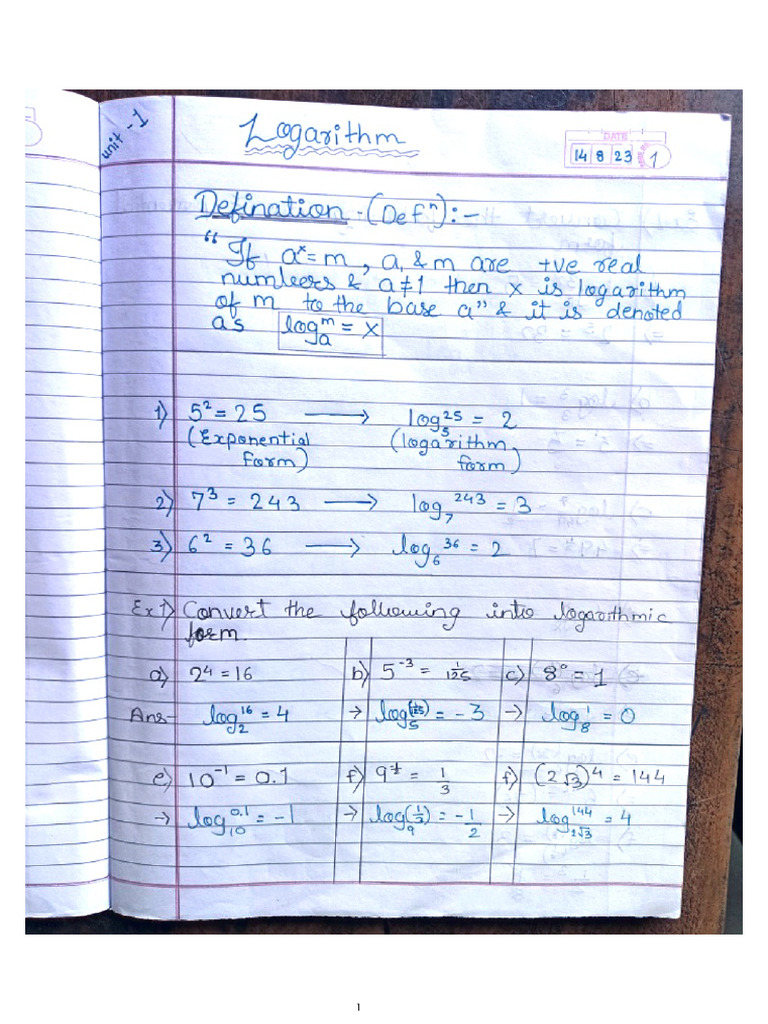 unit - 1
Logarithm
DATE
14 8 23 1
Defination - (Defⁿ) :-
"If aˣ = m , a, & m are +ve real
numbers & a ≠ 1 then x is logarithm
of m to the base a" & it is denoted
as logₐᵐ = x
1) 5² = 25 → log₅²⁵ = 2
(Exponential form) (logarithm form)
2) 7³ = 243 → log₇²⁴³ = 3
3) 6² = 36 → log₆³⁶ = 2
Ex 1) Convert the following into logarithmic
form.
a) 2⁴ = 16 b) 5⁻³ = 1/125 c) 8⁰ = 1
Ans- log₂¹⁶ = 4 → log₅(1/125) = -3 → log₈¹ = 0
e) 10⁻¹ = 0.1 f) = 1/3 f) (2√3)⁴ = 144
→ log₁₀⁰·¹ = -1 → log₉(1/3) = -1/2 → log 2√3 144 = 4
1